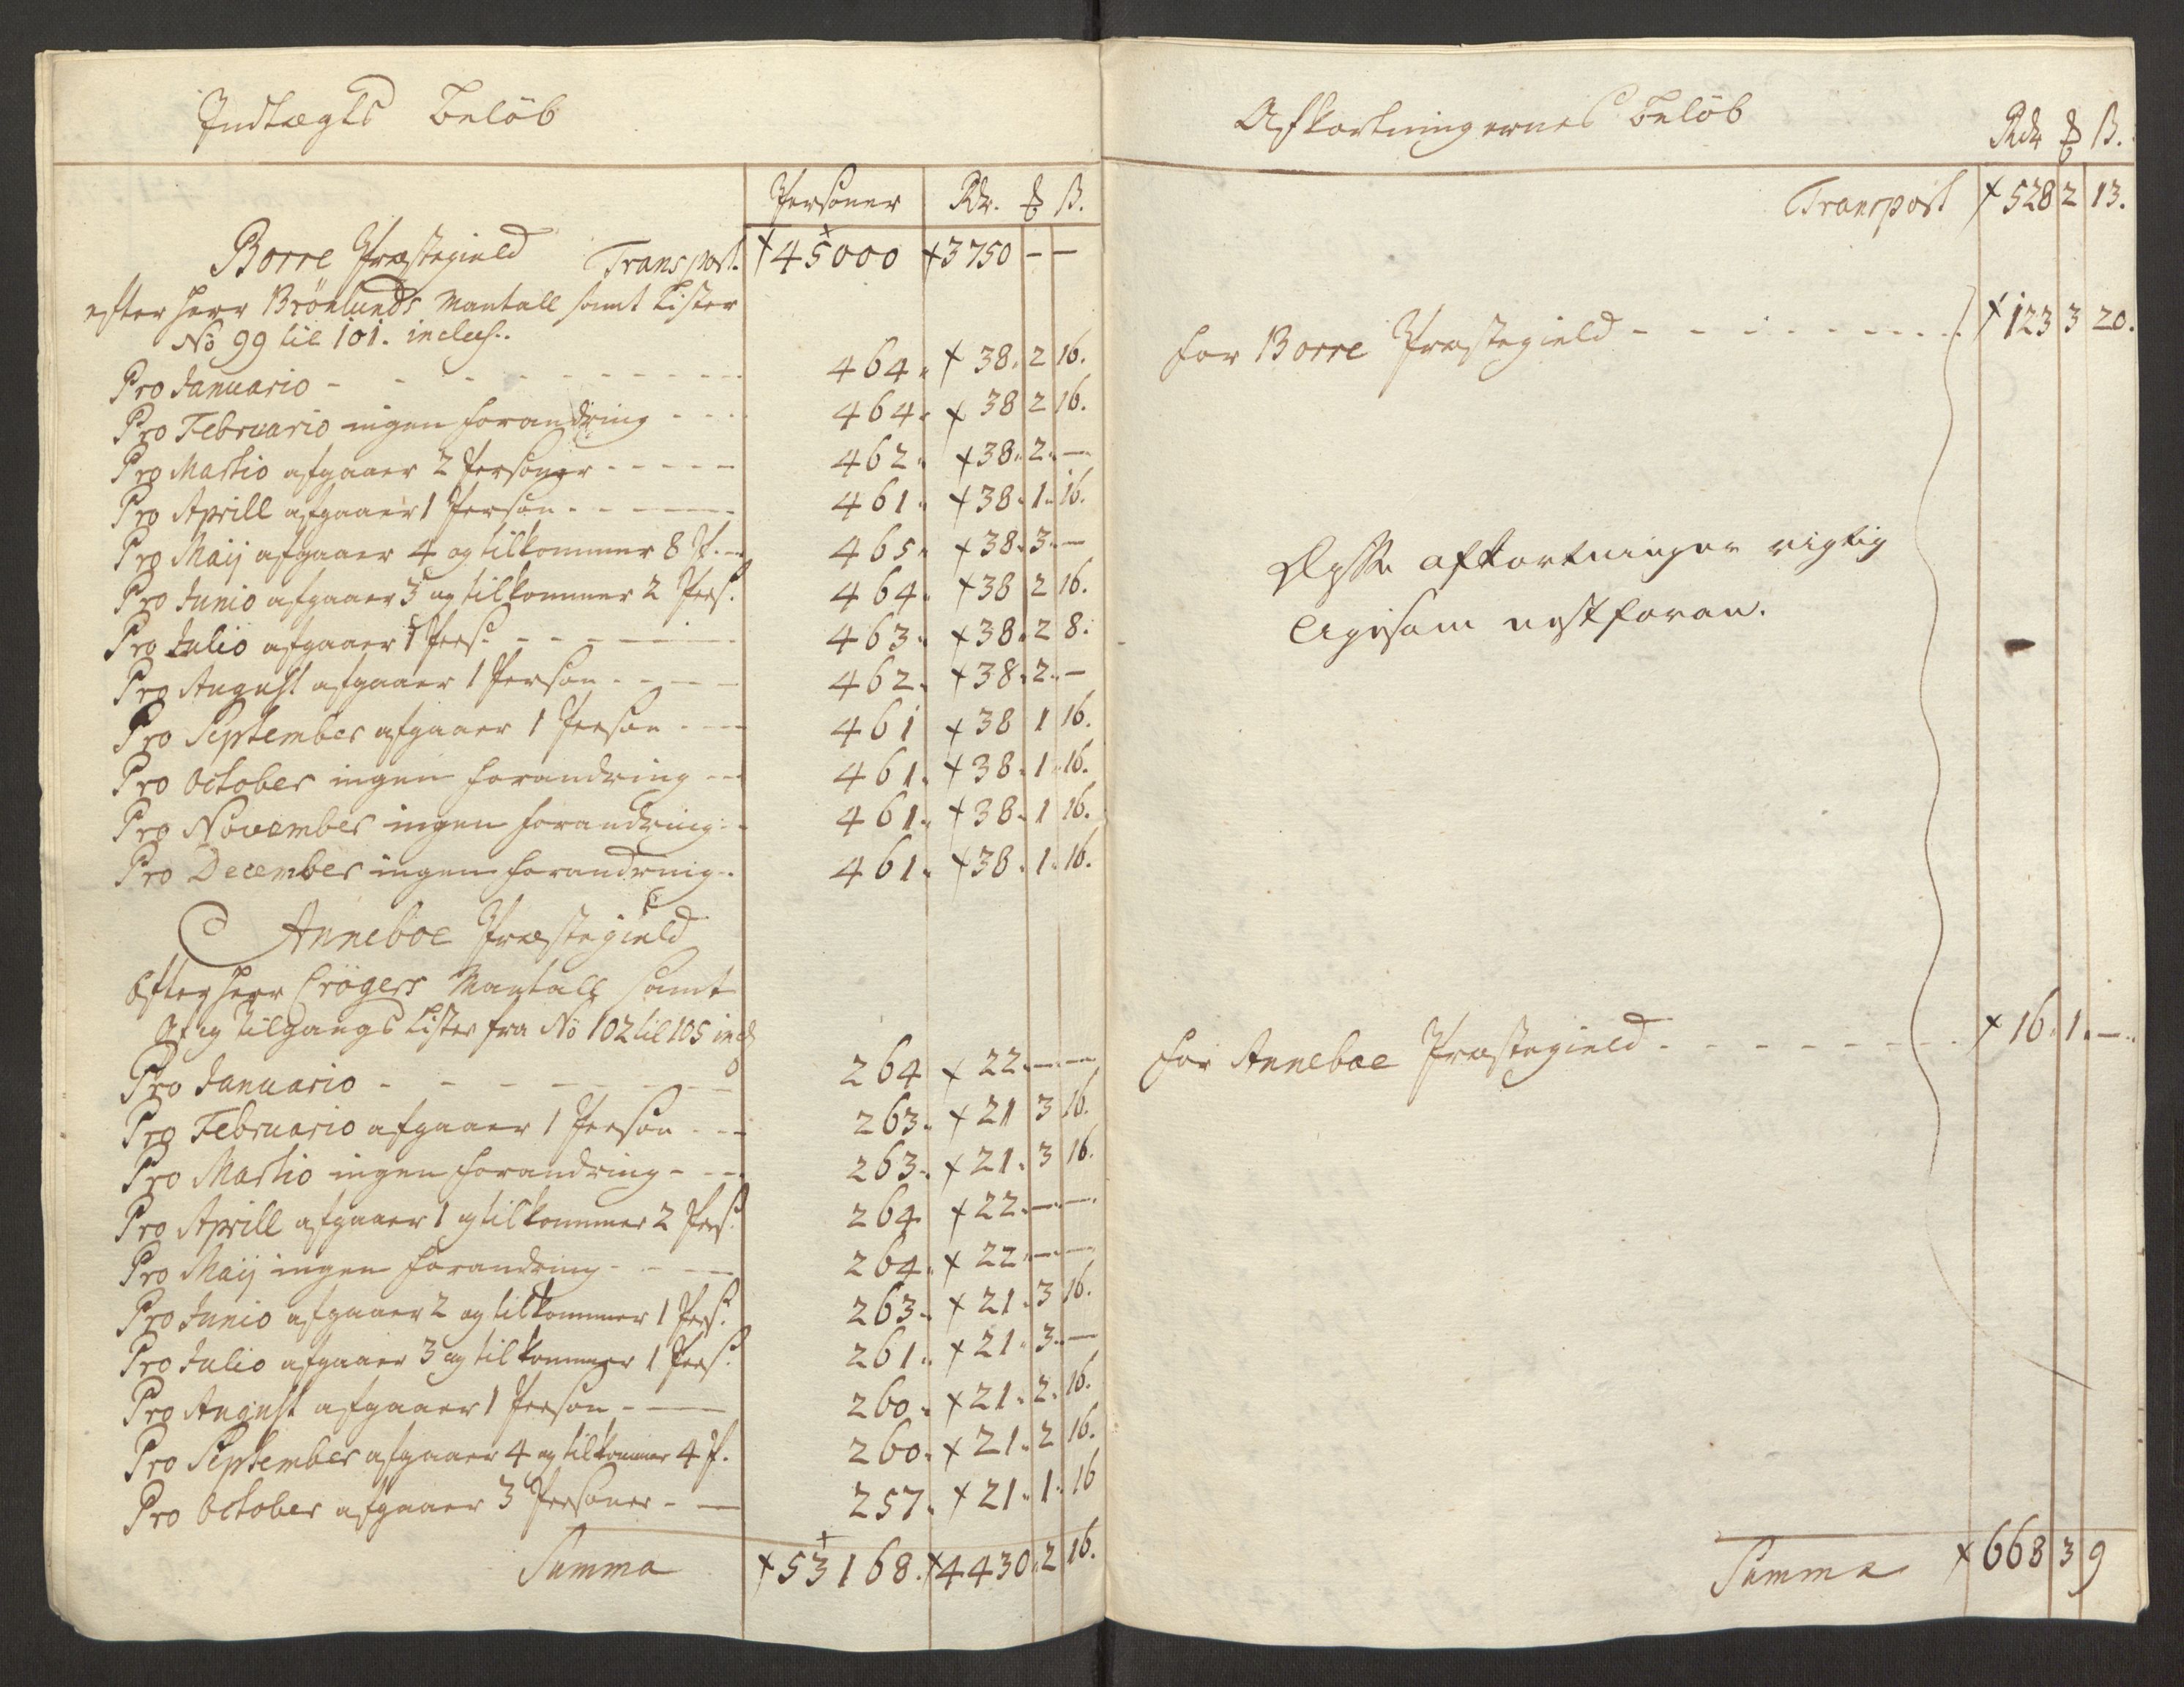 Indtægts Beløb
Personer Rdr. ß.
Borre Præstegield Transport. 45000 3750 – –
efter Herr Brönlunds Mantall samt Lister
No 99 til 101. inclus.
Pro Januario - - - 464. 38. 2 16.
Pro Februario ingen forandring - - - 464. 38 2 16.
Pro Martio afgaaer 2 Personer - - - 462. 38. 2. –
Pro Aprill afgaaer 1 Person - - - 461. 38. 1. 16.
Pro Maij afgaaer 4 og tilkommer 8 P. 465. 38. 3. –
Pro Junio afgaaer 3 og tilkommer 2 Pers. 464. 38 2 16.
Pro Julio afgaaer 1 Pers. - - - 463. 38. 2 8.
Pro August afgaaer 1 Person - - - 462. 38. 2. –
Pro September afgaaer 1 Person - - - 461 38 1 16.
Pro October ingen forandring - - 461. 38. 1. 16.
Pro November ingen forandring - - 461. 38. 1 16.
Pro December ingen forandring. 461. 38. 1. 16.
Anneboe Præstegield
Efter Herr Crögers Mantall samt
Af og Tilgangs Lister fra No 102 til 105 incl
Pro Januario - - - 264 22. – –
Pro Februario afgaaer 1 Person - - - 263. 21 3 16.
Pro Martio ingen forandring - - - 263. 21. 3 16.
Pro Aprill afgaaer 1 og tilkommer 2 Pers. 264 22. – –
Pro Maij ingen forandring - - - 264. 22 – –
Pro Junio afgaaer 2 og tilkommer 1 Pers. 263. 21. 3 16.
Pro Julio afgaaer 3 og tilkommer 1 Pers. 261. 21. 3. –
Pro August afgaaer 1 Person - - - 260. 21. 2. 16.
Pro September afgaaer 4 og tilkommer 4 P. 260. 21. 2 16.
Pro October afgaaer 3 Personer - - 257. 21. 1. 16
Summa 53168. 4430. 2 16.
Afkortningernes Beløb
Rdr ß.
Transport 528 2 13.
for Borre Præstegield - - - 123 3 20.
Disse afkortninger rigtig
ligesom nestforan.
for Anneboe Præstegield - - - 16. 1. –
Summa 668 3 9